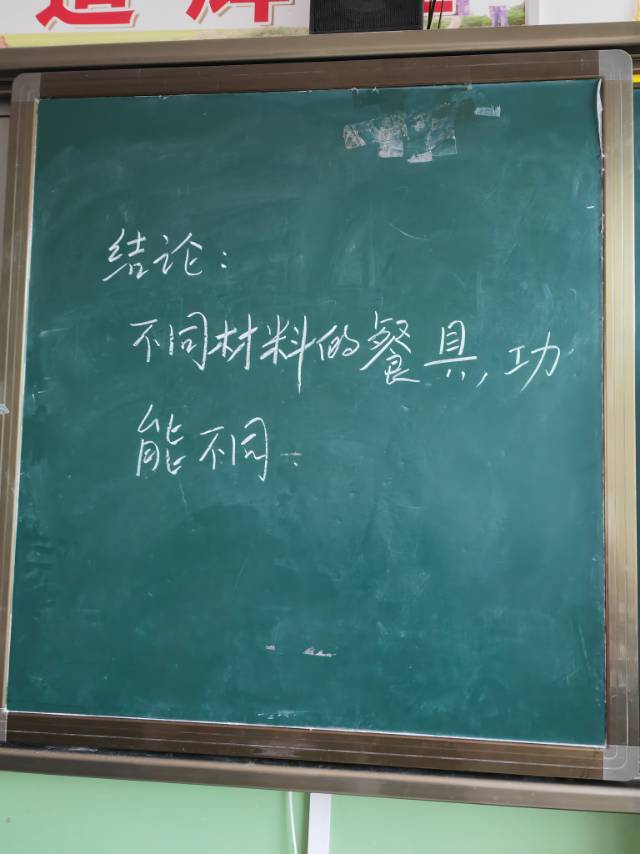 结论:
不同材料的餐具,功
能不同.